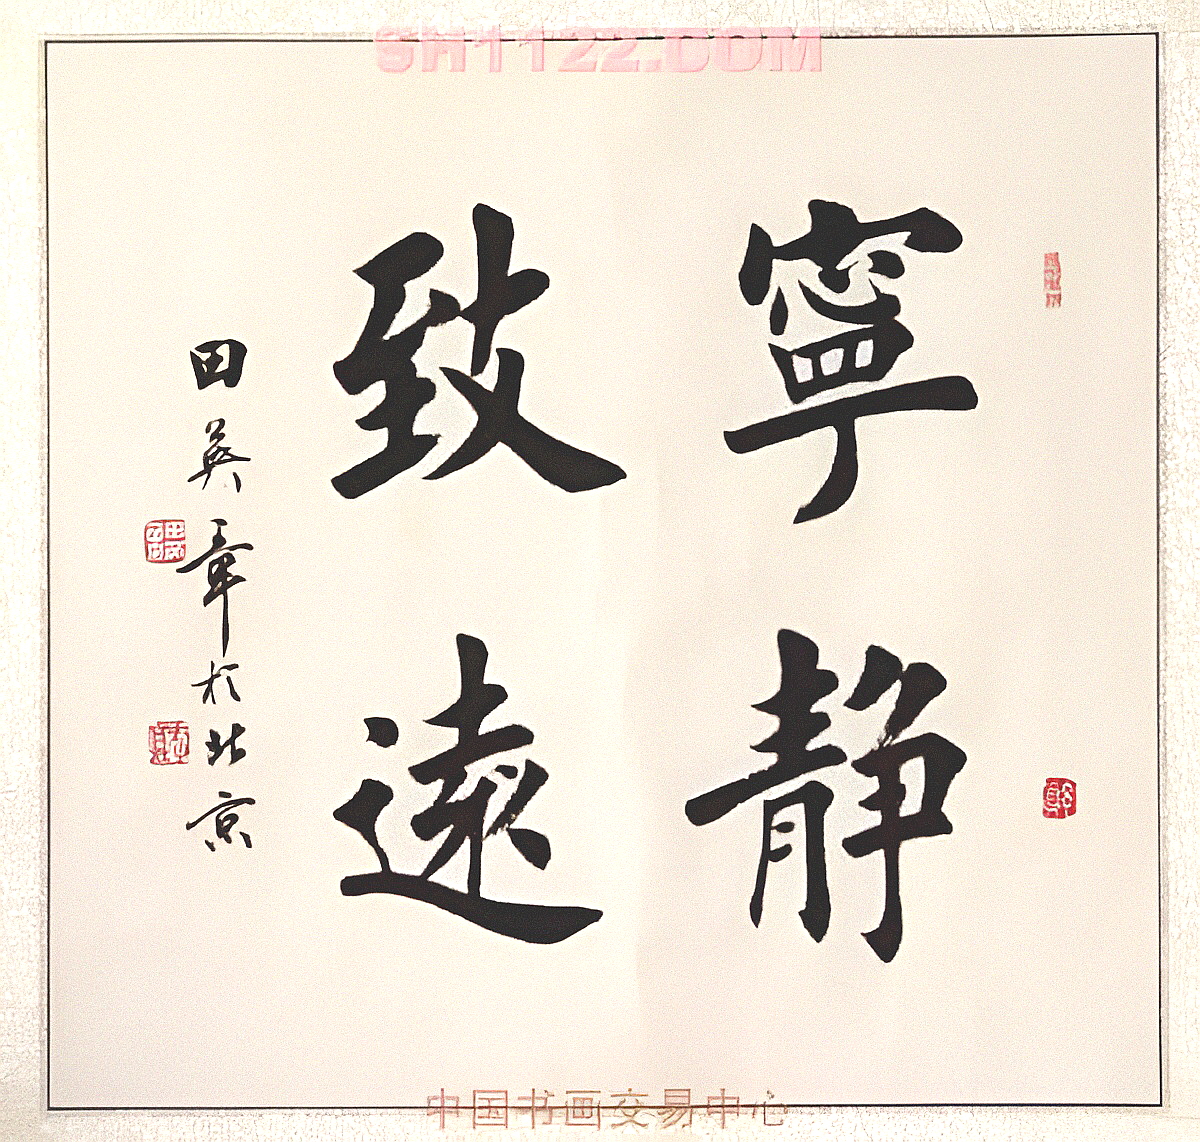 SH1122.COM
寧静
致遠
田英章於北京
中国书画交易中心